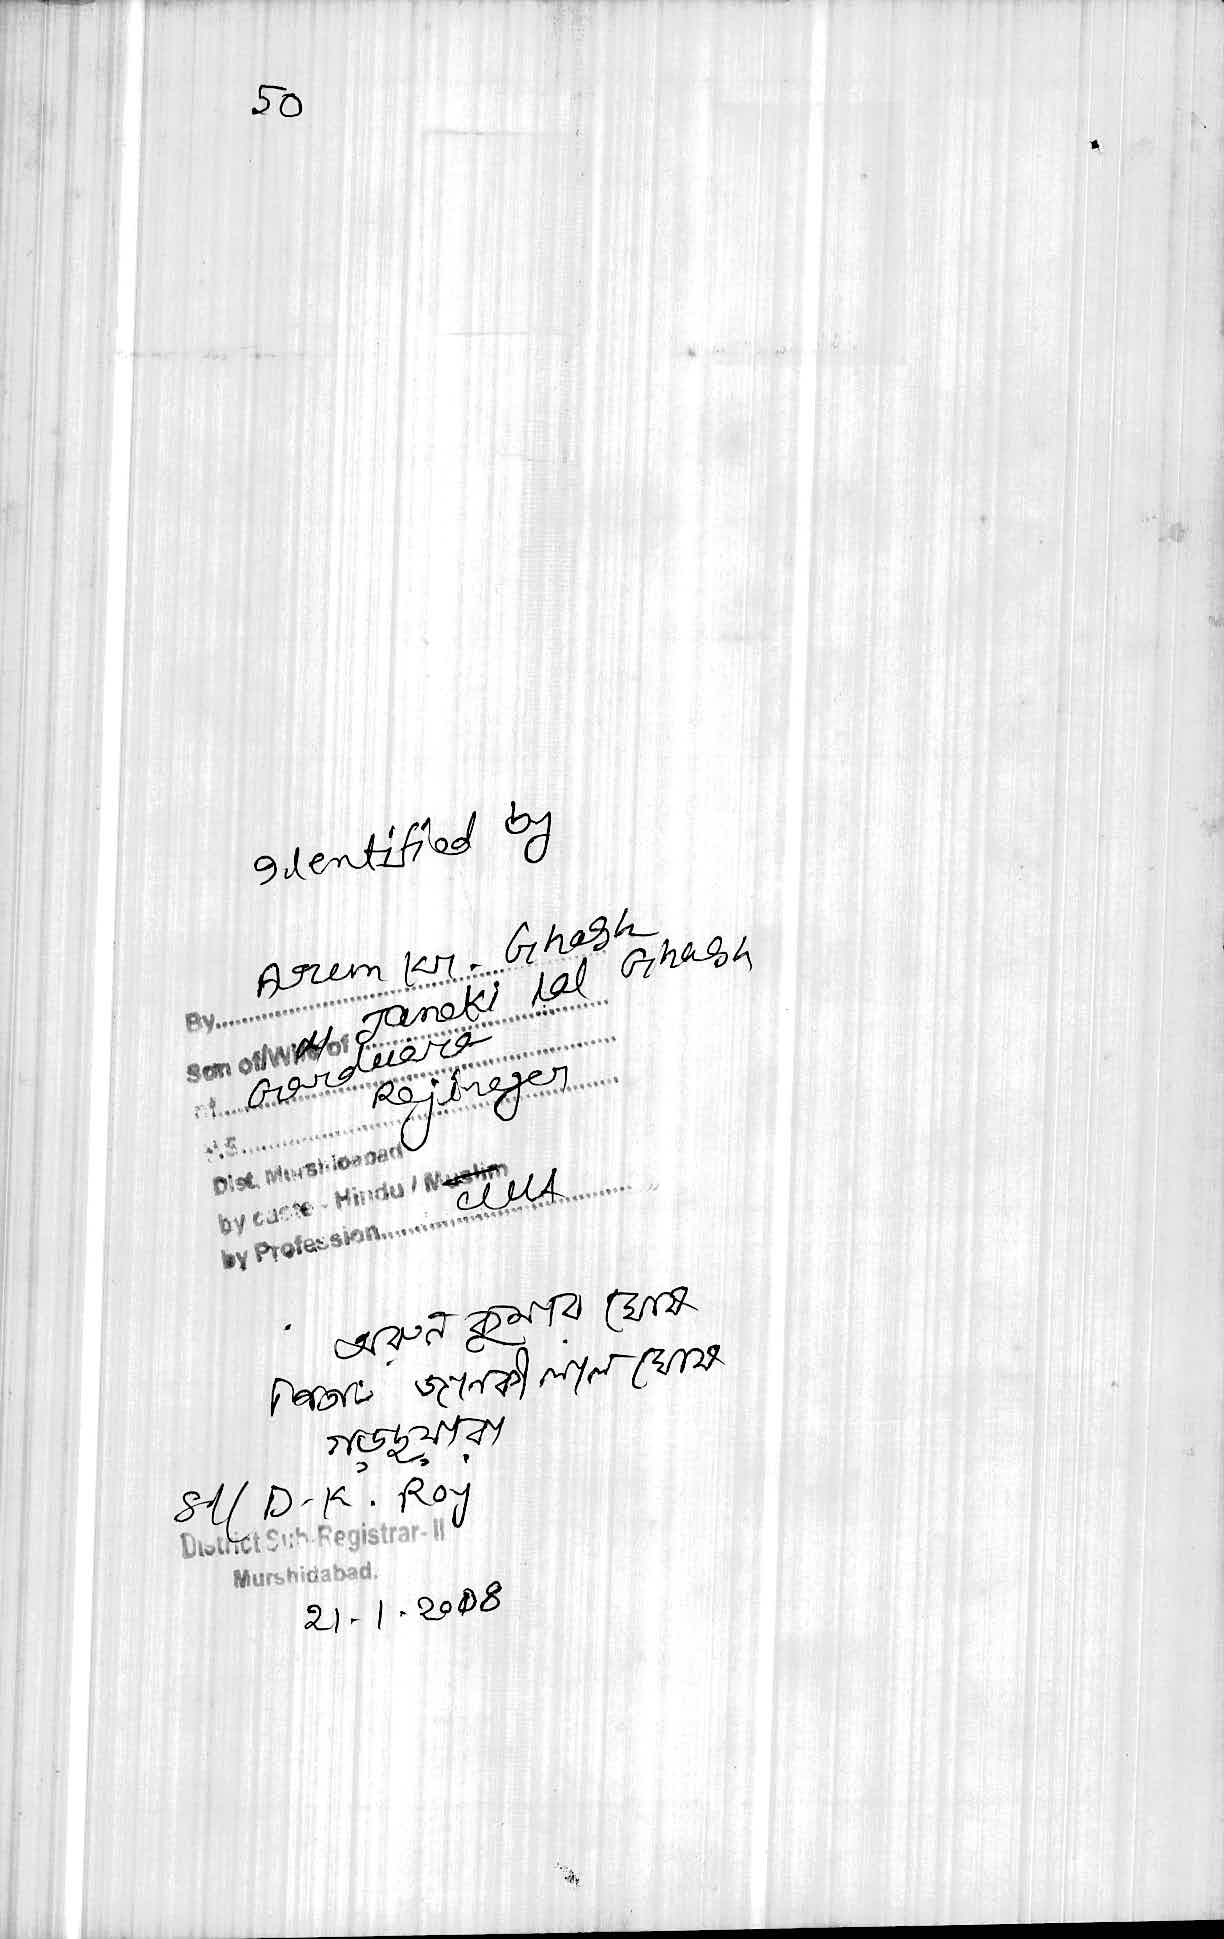 50
Identified by
By Arun Kr. Ghosh
Son of/Wife of Janaki Lal Ghosh
at Garduara
P.S. Rejinagar
Dist. Murshidabad
by caste - Hindu / Muslim
by Profession
অরুন কুমার ঘোষ
পিতা জানকী লাল ঘোষ
গড়দুয়ারা
Sd/ D. K. Roy
District Sub-Registrar-II
Murshidabad.
21.1.2008